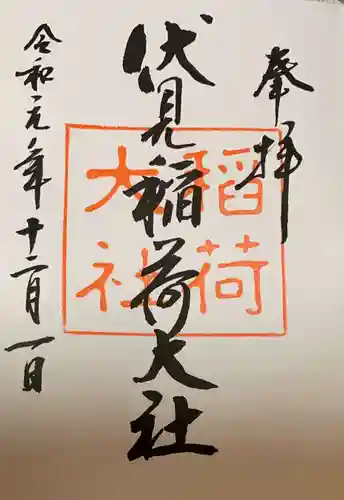 奉拝
伏見稲荷大社
稲荷
大社
令和元年十二月一日